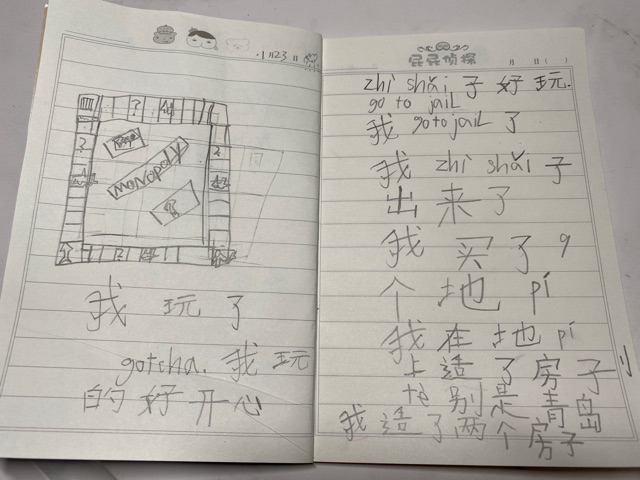 1 11 23 11
?
2
MONOPOLY
?
我 玩 了
gotcha. 我 玩
的 好 开 心
屁屁侦探
zhi shǎi 子 好 玩.
go to jail
我 go to jail 了
我 zhi shǎi 子
出 来 了
我 买 了 9
个 地 pí
我 在 地 pí
上 造 了 房 子
特 别 是 青 岛
我 造 了 两 个 房 子